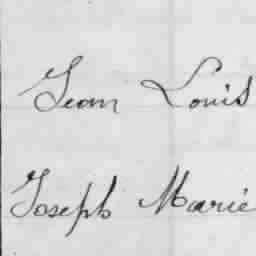 Jean Louis
Joseph Marie